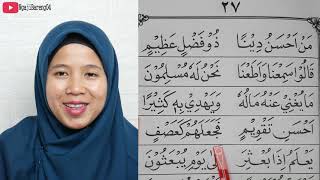 NgajiBareng04
٢٧
مَنْ اَحْسَنُ دِيْنًا ذُوْ فَضْلٍ عَظِيْمٍ
قَالُوْا سَمِعْنَا وَاَطَعْنَا نَحْنُ لَهٗ مُسْلِمُوْنَ
مَا يُغْنِيْ عَنْهُ مَالُهٗ وَيَهْدِيْ بِهٖ كَثِيْرًا
اَحْسَنِ تَقْوِيْمٍ فَجَعَلَهُمْ كَعَصْفٍ
يَعْلَمُ اِذَا بُعْثِرَ يَوْمِ يُبْعَثُوْنَ